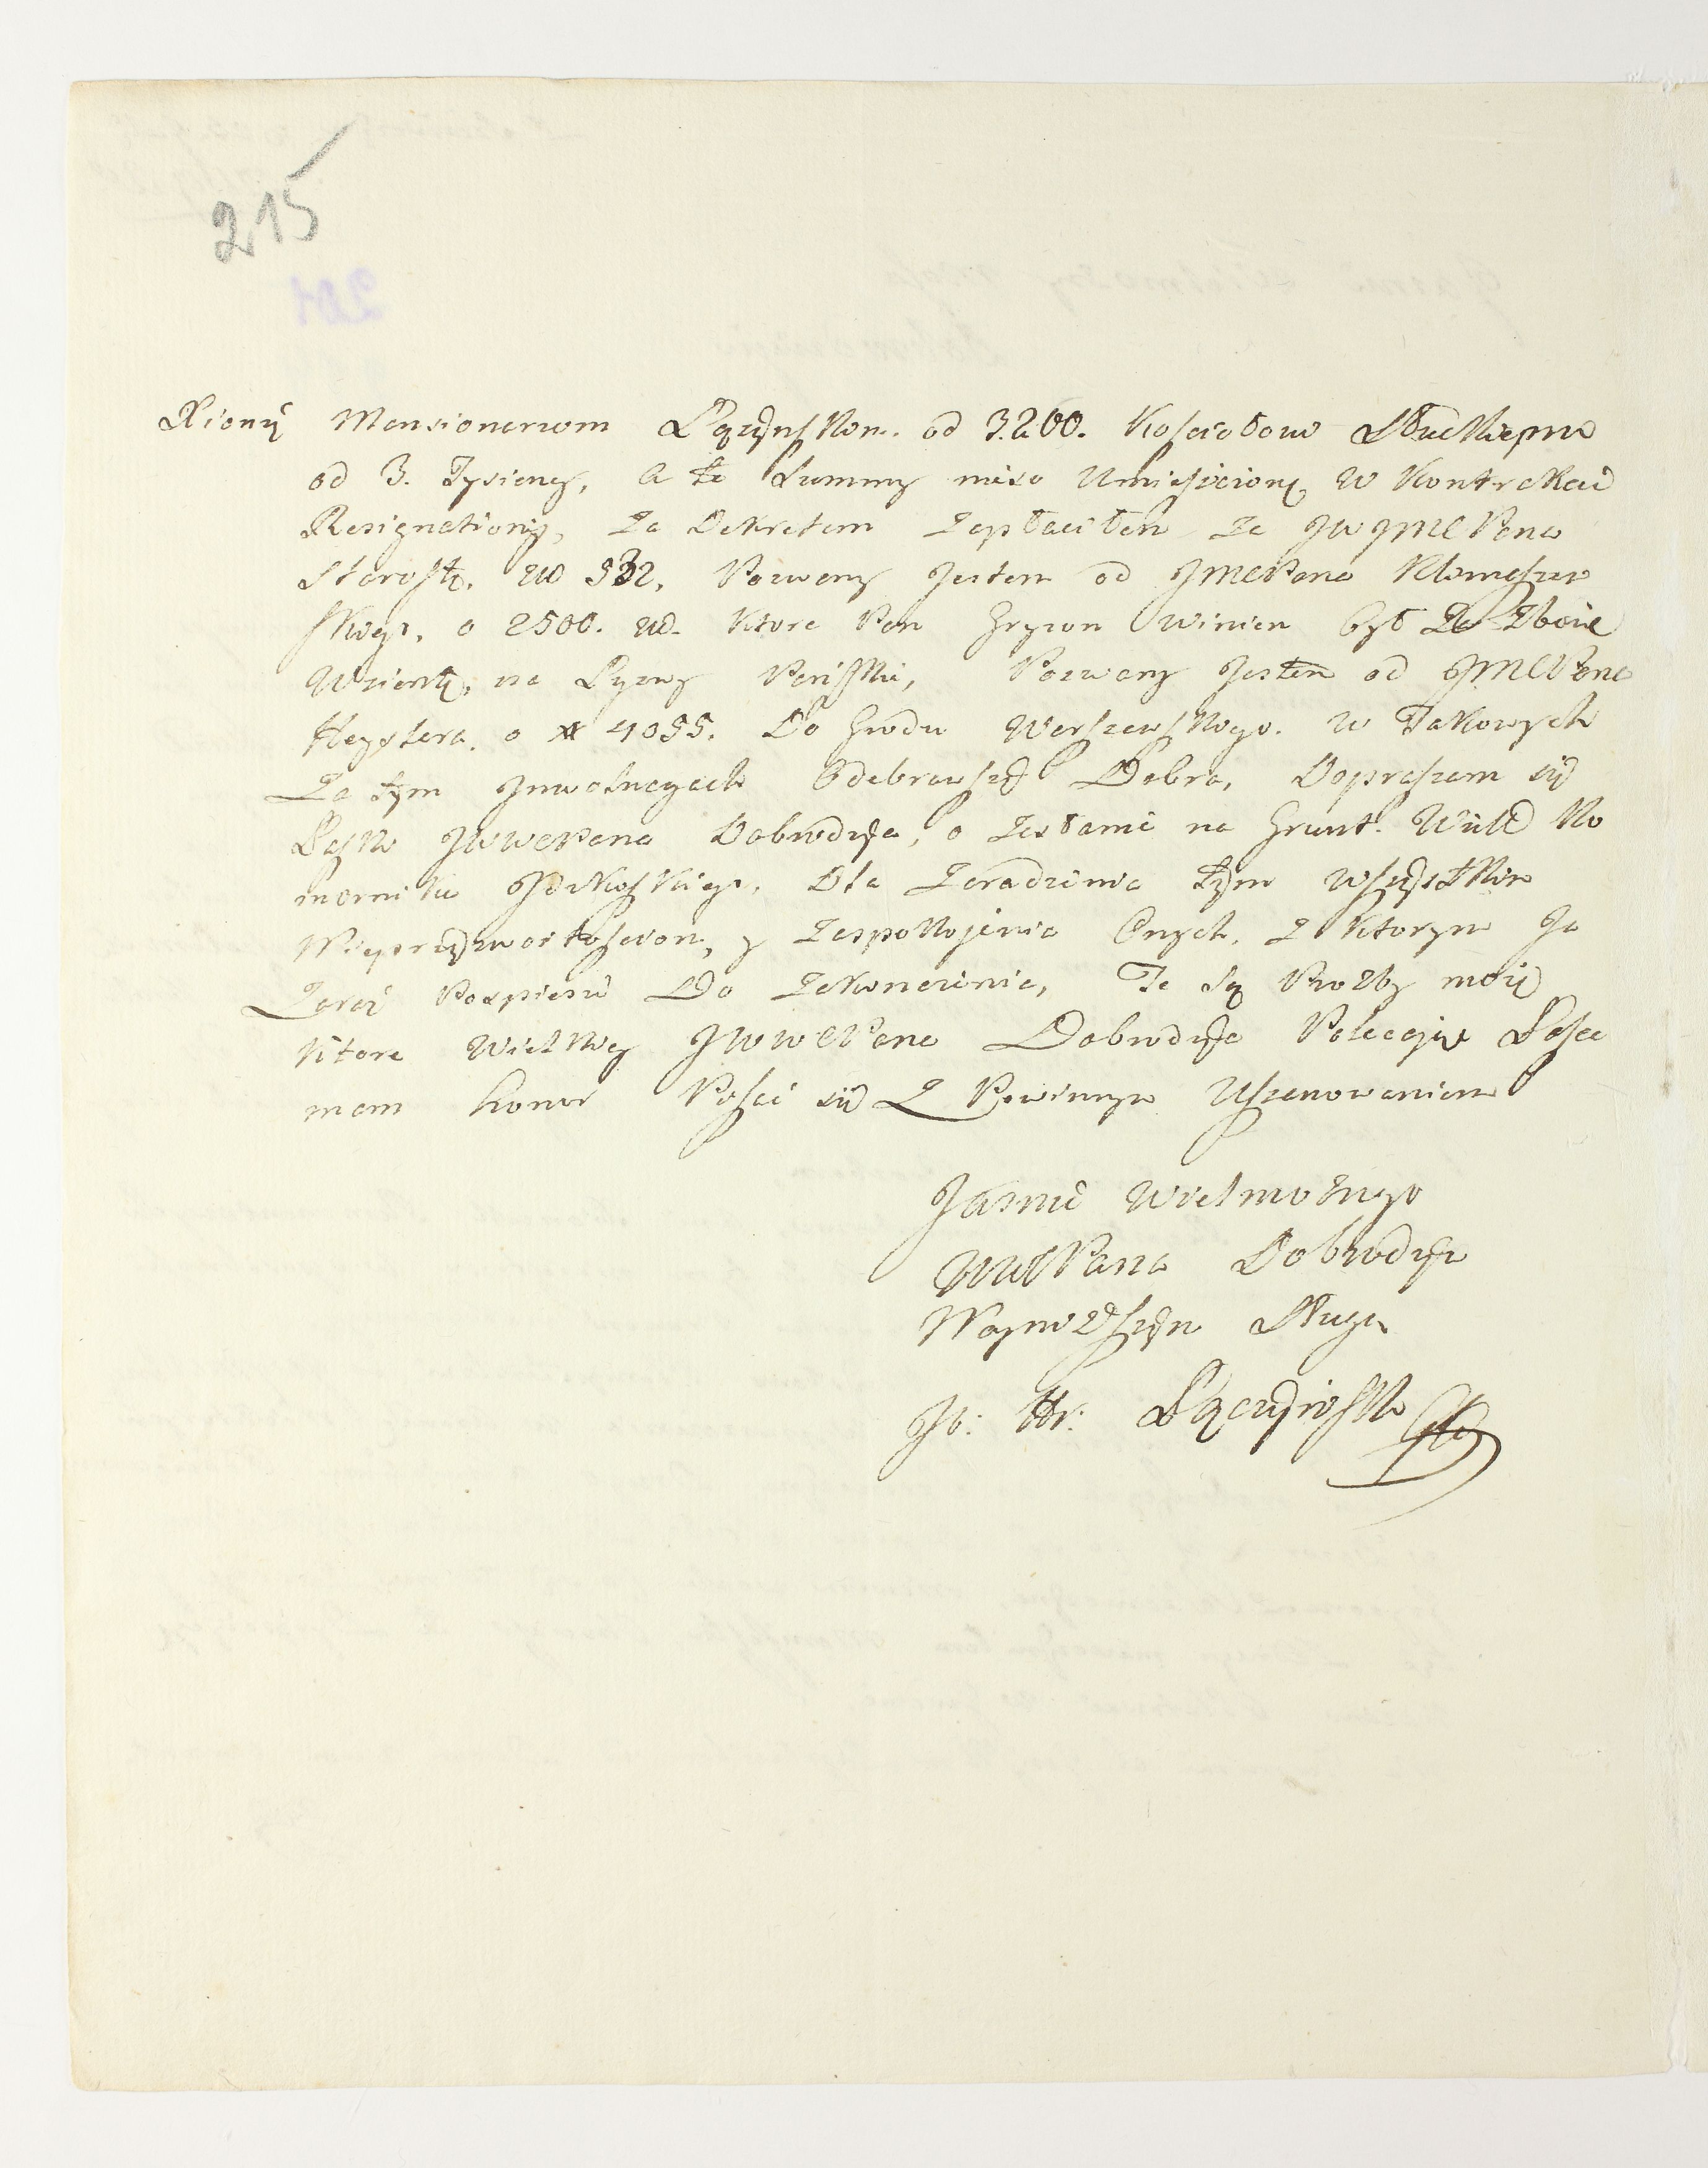 215
201
Xięży Mansionarzom Łęczyńskom. od 3.200. Kościołowi Słuckiemu
od 3. Tysięcy, a te Summy miso Umieszcione w Kontrakcie
Resignationis, Za Dekretem Zapłaciłem za JWJMC Pana
Starostę. zł 532, Pozwany Jestem od JMCPana
skiego, o 2500. zł. Ktore Pan Gryzon Winien był Za Zboże
Wziente, na Łyzwy Pańskie, Pozwany Jestem od JMCPana
Heystera. o # 4055. Do Grodu Warszewskiego. w Takowych
Za tym Inwolucyach Odebrawszy Dobra, Dopraszam się
Łaski JWWCPana Dobrodzieja, o Zesłanie na Grunt. Wielk Ko
mornika Dla Zaradzenia tym Wszystkim
Nieprzyzwoitościom, y Zaspokojenia Onych, Z Ktorym Ja
Zaraz Pospieszę Do Zakonczenia, Te są Prozby moie
Ktore Wielkiey JWWCPana Dobrodzieja Polecając Łasce
mam honor Pisać się Z Powinnym Uszanowaniem
Jasnie Wielmoznego
WMCPana Dobrodzieja
Nayniższym Sługą
Jb: Hr: Łączyński